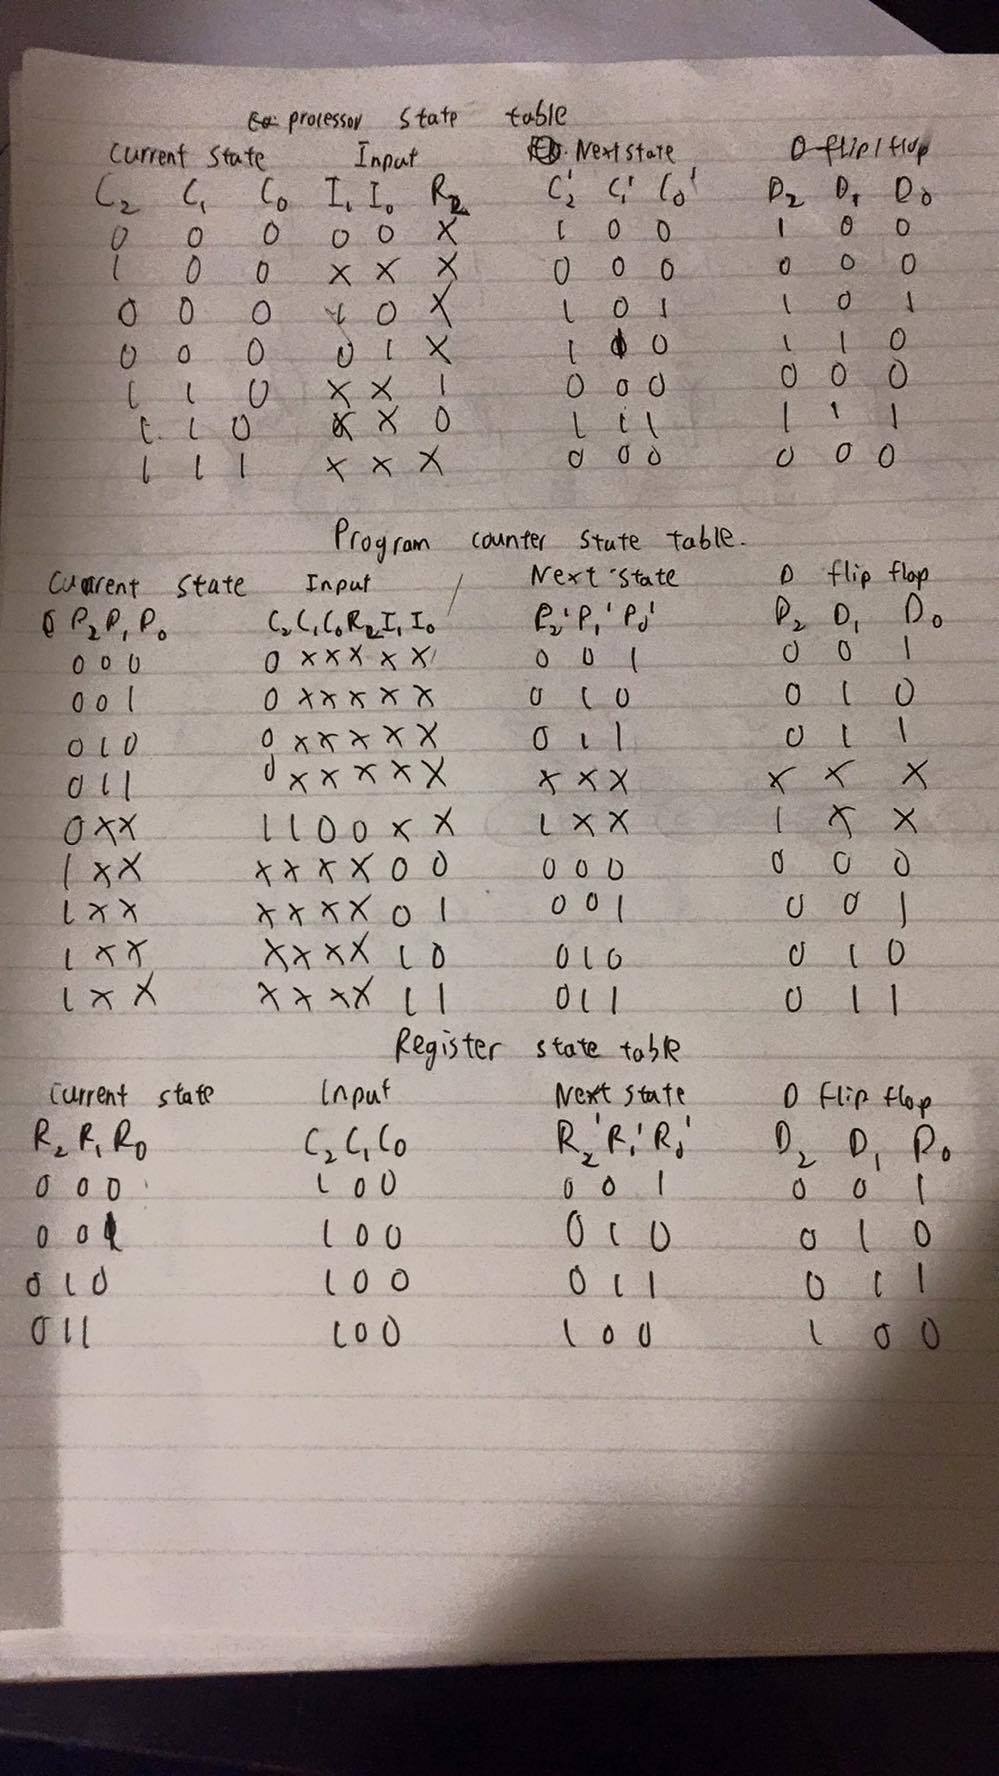 processor state table
Current state Input Next state D-flip/flop
C₂ C₁ C₀ I₁ I₀ R₂ C₂' C₁' C₀' D₂ D₁ D₀
0 0 0 0 0 X 1 0 0 1 0 0
1 0 0 X X X 0 0 0 0 0 0
0 0 0 1 0 X 1 0 1 1 0 1
0 0 0 0 1 X 1 1 0 1 1 0
1 1 0 X X 1 0 0 0 0 0 0
1 1 0 X X 0 1 1 1 1 1 1
1 1 1 X X X 0 0 0 0 0 0
Program counter state table.
Current state Input Next state D flip flop
P₂ P₁ P₀ C₂ C₁ C₀ R₂ I₁ I₀ P₂' P₁' P₀' D₂ D₁ D₀
0 0 0 0 X X X X X 0 0 1 0 0 1
0 0 1 0 X X X X X 0 1 0 0 1 0
0 1 0 0 X X X X X 0 1 1 0 1 1
0 1 1 0 X X X X X X X X X X X
0 X X 1 1 0 0 X X 1 X X 1 X X
1 X X X X X X 0 0 0 0 0 0 0 0
1 X X X X X X 0 1 0 0 1 0 0 1
1 X X X X X X 1 0 0 1 0 0 1 0
1 X X X X X X 1 1 0 1 1 0 1 1
Register state table
Current state Input Next state D flip flop
R₂ R₁ R₀ C₂ C₁ C₀ R₂' R₁' R₀' D₂ D₁ D₀
0 0 0 1 0 0 0 0 1 0 0 1
0 0 1 1 0 0 0 1 0 0 1 0
0 1 0 1 0 0 0 1 1 0 1 1
0 1 1 1 0 0 1 0 0 1 0 0